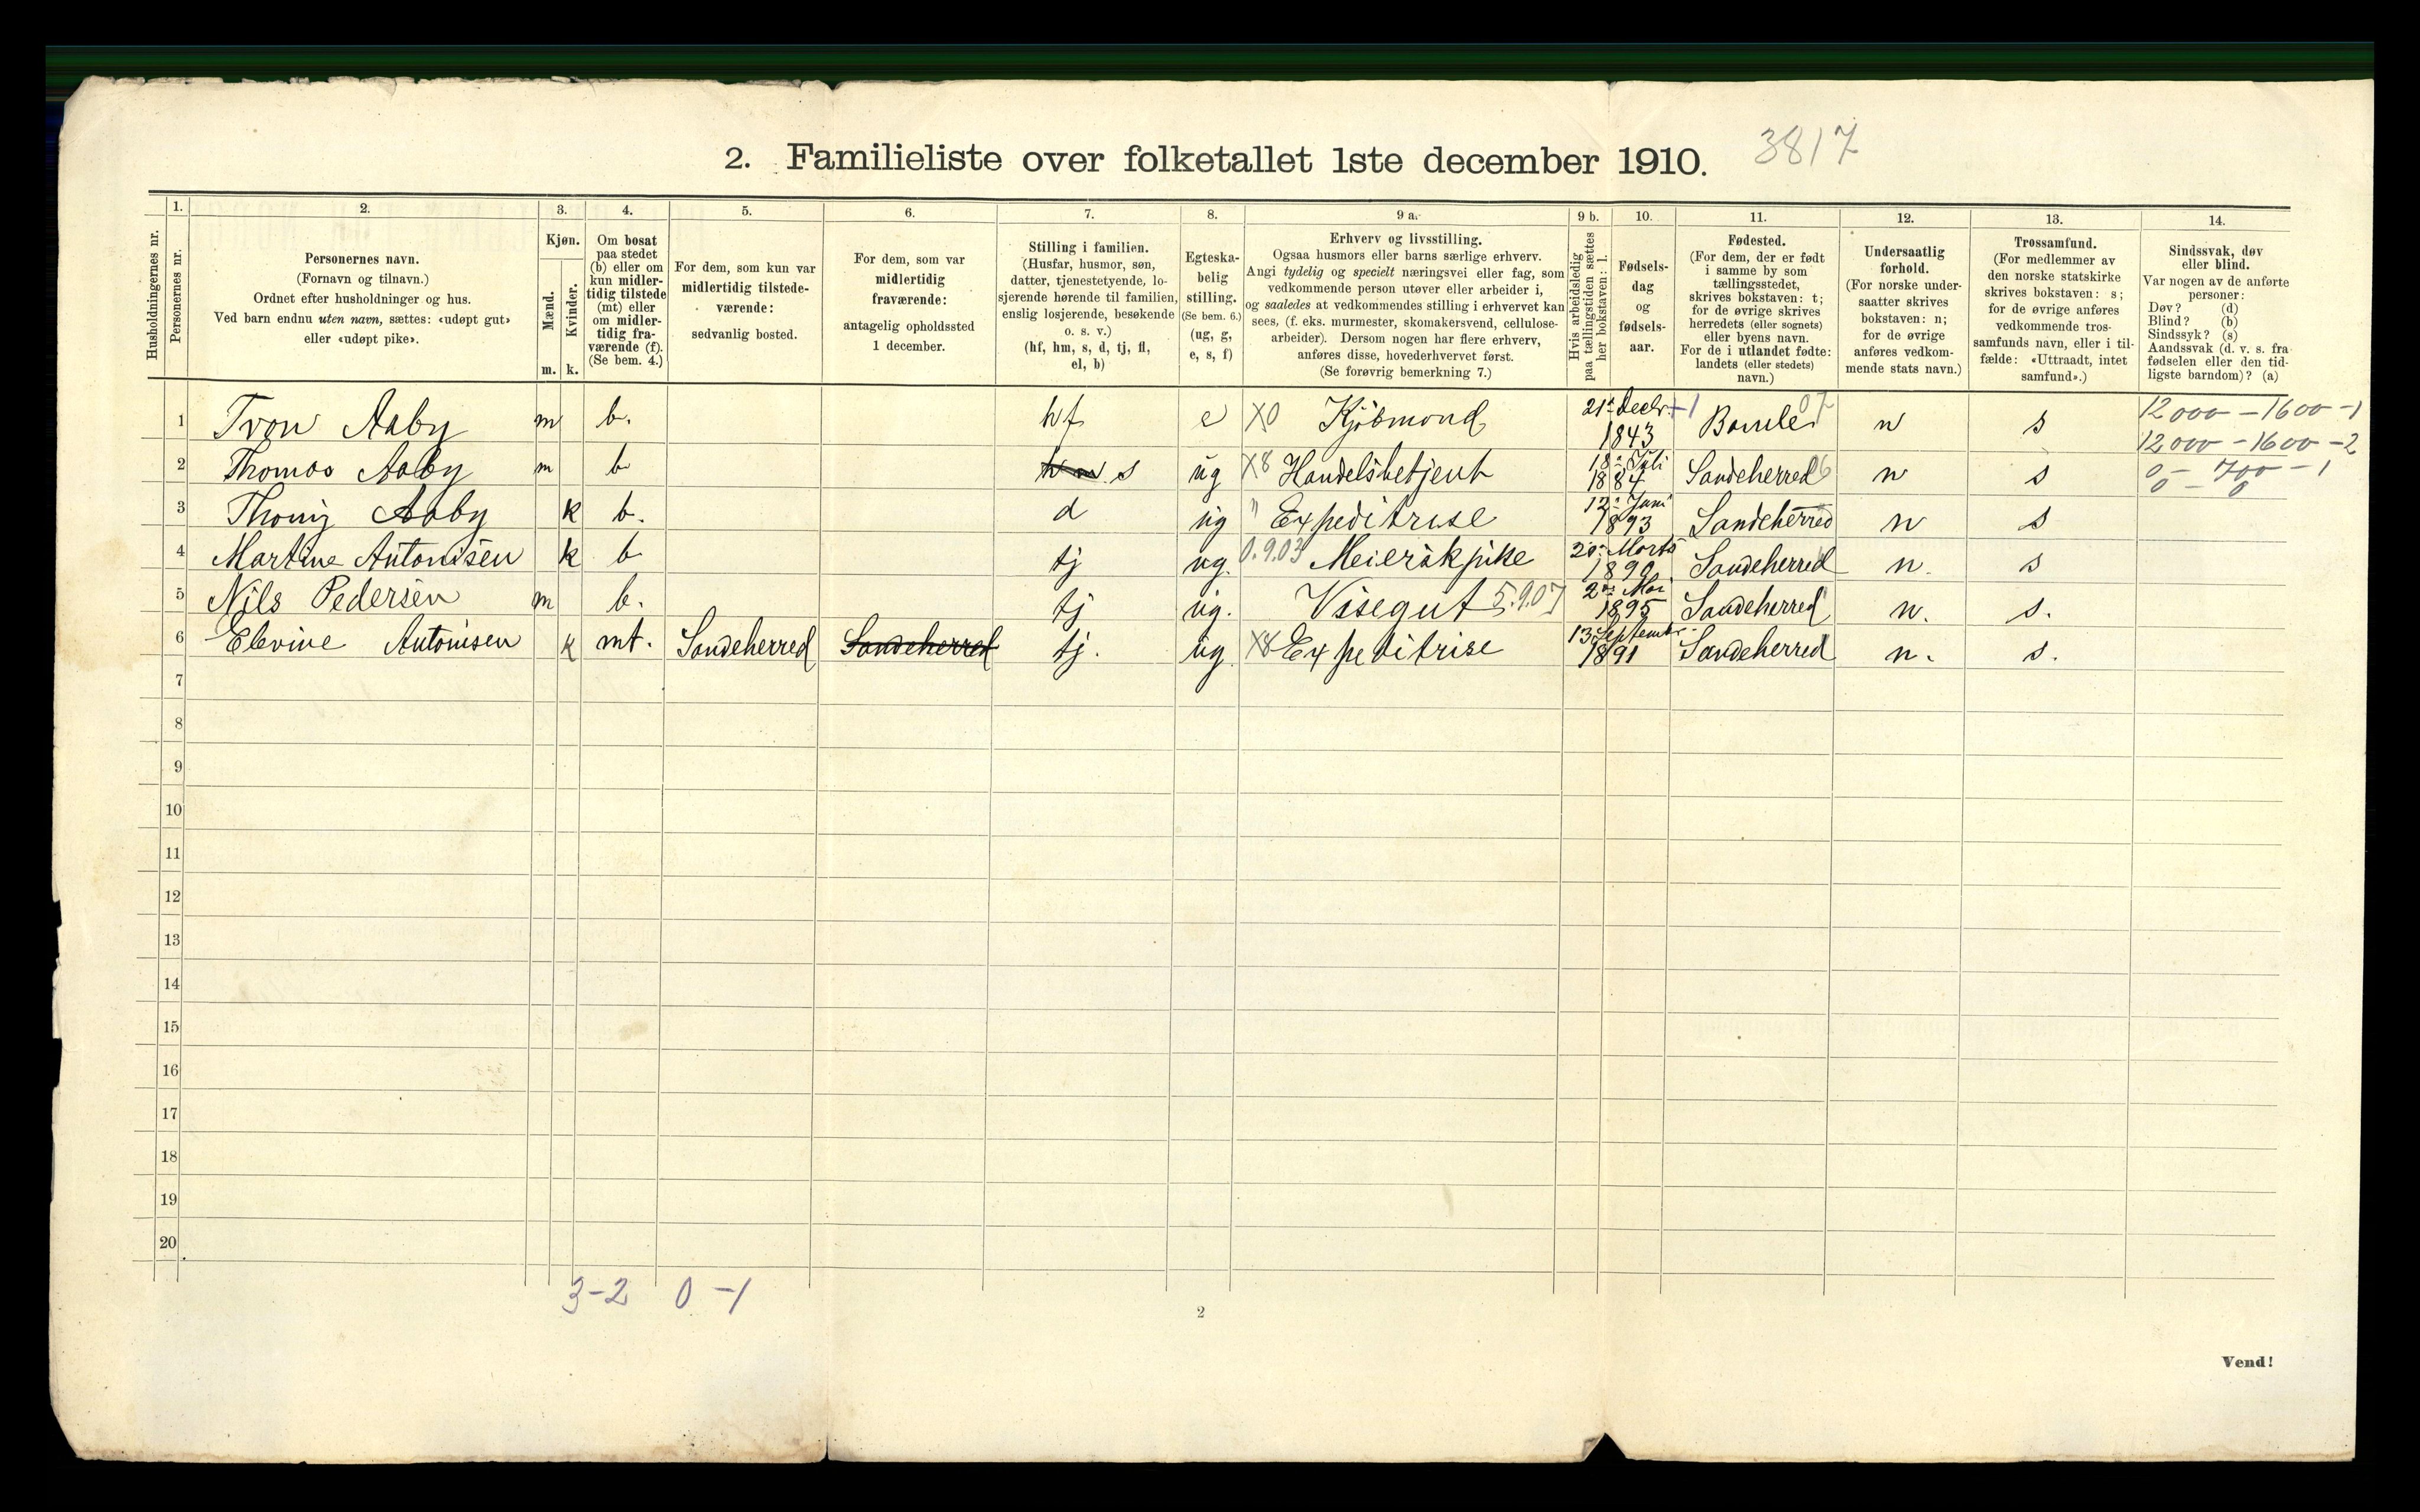 2. Familieliste over folketallet 1ste december 1910. 3817
1. 2. 3. 4. 5. 6. 7. 8. 9 a. 9 b. 10. 11. 12. 13. 14.
Husholdningernes nr.
Personernes nr.
Personernes navn.
(Fornavn og tilnavn.)
Ordnet efter husholdninger og hus.
Ved barn endnu uten navn, sættes: «udøpt gut»
eller «udøpt pike».
Kjøn.
Mænd.
Kvinder.
m. k.
Om bosat
paa stedet
(b) eller om
kun midler-
tidig tilstede
(mt) eller
om midler-
tidig fra-
værende (f).
(Se bem. 4.)
For dem, som kun var
midlertidig tilstede-
værende:
sedvanlig bosted.
For dem, som var
midlertidig
fraværende:
antagelig opholdssted
1 december.
Stilling i familien.
(Husfar, husmor, søn,
datter, tjenestetyende, lo-
sjerende hørende til familien,
enslig losjerende, besøkende
o. s. v.)
(hf, hm, s, d, tj, fl,
el, b)
Egteska-
belig
stilling.
(Se bem. 6.)
(ug, g,
e, s, f)
Erhverv og livsstilling.
Ogsaa husmors eller barns særlige erhverv.
Angi tydelig og specielt næringsvei eller fag, som
vedkommende person utøver eller arbeider i,
og saaledes at vedkommendes stilling i erhvervet kan
sees, (f. eks. murmester, skomakersvend, cellulose-
arbeider). Dersom nogen har flere erhverv,
anføres disse, hovederhvervet først.
(Se forøvrig bemerkning 7.)
Hvis arbeidsledig
paa tællingstiden sættes
her bokstaven: l.
Fødsels-
dag
og
fødsels-
aar.
Fødested.
(For dem, der er født
i samme by som
tællingsstedet,
skrives bokstaven: t;
for de øvrige skrives
herredets (eller sognets)
eller byens navn.
For de i utlandet fødte:
landets (eller stedets)
navn.)
Undersaatlig
forhold.
(For norske under-
saatter skrives
bokstaven: n;
for de øvrige
anføres vedkom-
mende stats navn.)
Trossamfund.
(For medlemmer av
den norske statskirke
skrives bokstaven: s;
for de øvrige anføres
vedkommende tros-
samfunds navn, eller i til-
fælde: «Uttraadt, intet
samfund».)
Sindssvak, døv
eller blind.
Var nogen av de anførte
personer:
Døv? (d)
Blind? (b)
Sindssyk? (s)
Aandssvak (d. v. s. fra
fødselen eller den tid-
ligste barndom)? (a)
1 Tron Aaby m b. hf e X0 Kjöbmond 21 Decbr. +1 1843 Bamle 07 n s 12000 – 1600 – 1
12000 – 1600 – 2
2 Thomas Aaby m b s ug X8 Handelsbetjent 18 Juli 1884 Sandeherred n s 0 – 700 – 1
0 – 0
3 Thonny Aaby k b. d ug " Expeditrise 12 Juni 1893 Sandeherred n s
4 Martine Antonisen k b tj ug. 0.9.03 Meieriskpike 20 Marts 1890 Sandeherred n. s
5 Nils Pedersen m b. tj ug. Visegut 5.9.07 2 Mai 1895 Sandeherred n. s.
6 Elevine Antonisen k mt. Sandeherred Sandeherred tj. ug. X8 Expeditrise 13 Septembr. 1891 Sandeherred n. s.
7
8
9
10
11
12
13
14
15
16
17
18
19
20
3-2 0-1
2
Vend!